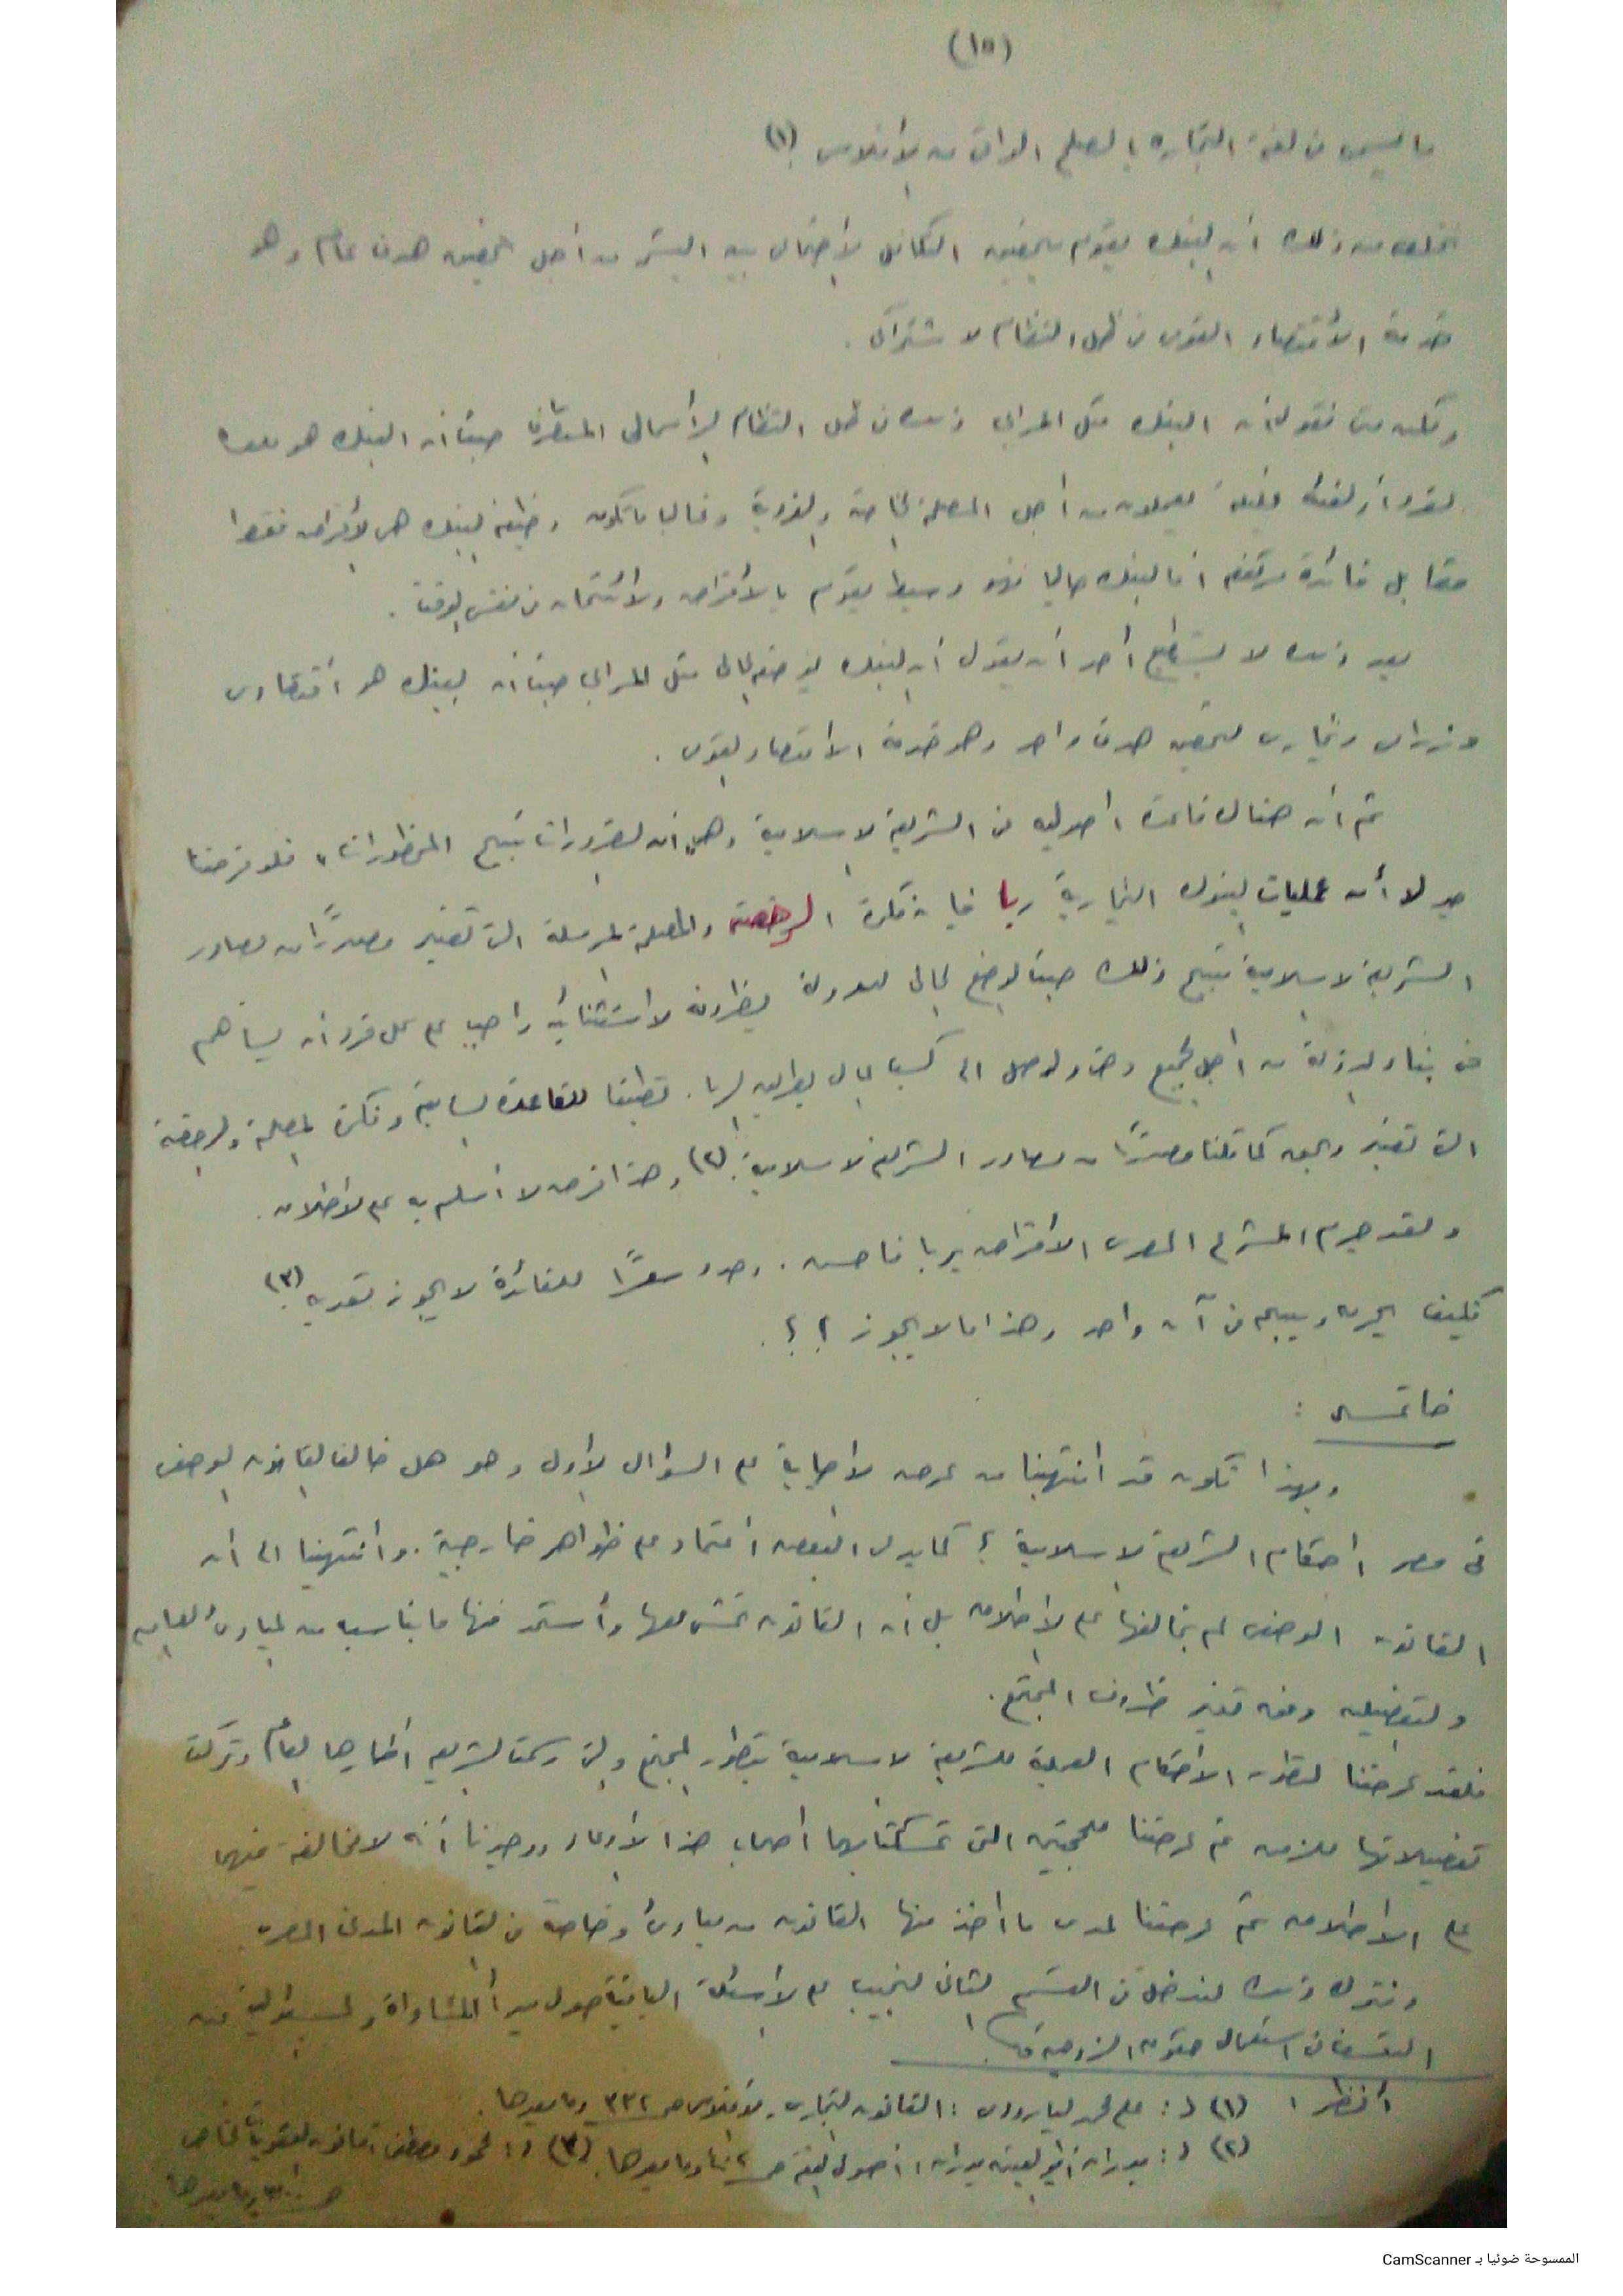 (١٥)
ما ليس في لغة التجاره بالصلح الواقي من الأفلاس (١)
نخلص من ذلك أن البنك يقوم بتحقيق التكافل الأجتماعي بين البشر من أجل تحقيق هدف عام وهو
خدمة الأقتصاد القومي في ظل النظام الاشتراكي .
ولكن متى نقول أن البنك مثل المرابي وذلك في ظل النظام الرأسمالي المتطرف حيث أن البنك هو ملك
لفرد أو لفئة قليلة يعملون من أجل المصلحة الخاصة والفردية وغالبا ما تكون وظيفة البنك هي الأقراض فقط
مقابل فائدة مرتفعه أما البنك حاليا فهو وسيط يقوم بالأقراض والائتمان في نفس الوقت .
بعد ذلك لا يستطيع أحد أن يقول أن البنك بوضعه الحالي مثل المرابي حيث أن البنك هو أقتصادي
وزراعي وتجاري لتحقيق هدف واحد وهو خدمة الاقتصاد القومي .
ثم أن هناك قاعدة أصوليه في الشريعة الاسلامية وهي "ان الضرورات تبيح المحظورات" فلو فرضنا
جدلا أن عمليات البنوك التجارية ربا فإن فكرة الرخصة والمصلحة المرسلة التي تعتبر مصدرًا من مصادر
الشريعة الاسلامية تبيح ذلك حيث الوضع الحالي للدولة بظروفه الاستثنائيه واجبا على كل فرد أن يساهم
في بناء الدولة من أجل الجميع وحتى ولو وصل الى كسب المال بطريق الربا . تطبيقا للقاعدة السابقة وفكرة المصلحة والرخصة
التي تعتبر وبحق كما قلنا مصدرًا من مصادر الشريعة الاسلامية . (٢) وهذا فرض لا أسلم به على الاطلاق .
ولقد جرم المشرع المصري الاقتراض بربا فاحش . وحدد سعرًا للفائدة لا يجوز تعديه (٣)
فكيف يحرم ويبيح في آن واحد وهذا ما لا يجوز ؟ ؟ .
خاتمــه :
وبهذا نكون قد انتهينا من عرض الاجابة على السؤال الأول وهو هل خالف القانون الوضعي
في مصر احكام الشريعة الاسلامية ؟ كما يدعي البعض اعتماد على ظواهر خارجية . وانتهينا الى أن
القانون الوضعي لم يخالفها على الاطلاق بل أن القانون تمشى معها وأستمد منها ما يناسبه من المبادئ العامه
والتفصيليه وفق تغير ظروف المجتمع .
فلقد عرضنا لتطور الأحكام العملية للشريعة الاسلامية بتطور المجتمع والتي رسمت الشريعه اطارها العام وتركت
تفصيلاتها للزمن ثم عرضنا للحجتين التي تمسك بهما أصحاب هذا الأدعاء ووجدنا أنه لا مخالفة فيهما
على الاطلاق ثم عرضنا لمدى ما أخذ منها القانون من مبادئ وخاصة في القانون المدني المصري .
ونترك ذلك لندخل في القسم الثاني لنجيب على الاسئلة الباقية حول مبدأ المساواة والمسئولية عن
التعسف في استعمال حقوق الزوجية
أنظر : (١) د : علي محمد البارودي : القانون التجاري والأفلاس ص ٣٣٢ وما بعدها .
(٢) د : بدران أبو العينين بدران : أصول الفقه ص وما بعدها . (٣) د : محمود مصطفى : قانون العقوبات الخاص
ص وما بعدها
الممسوحة ضوئيا بـ CamScanner